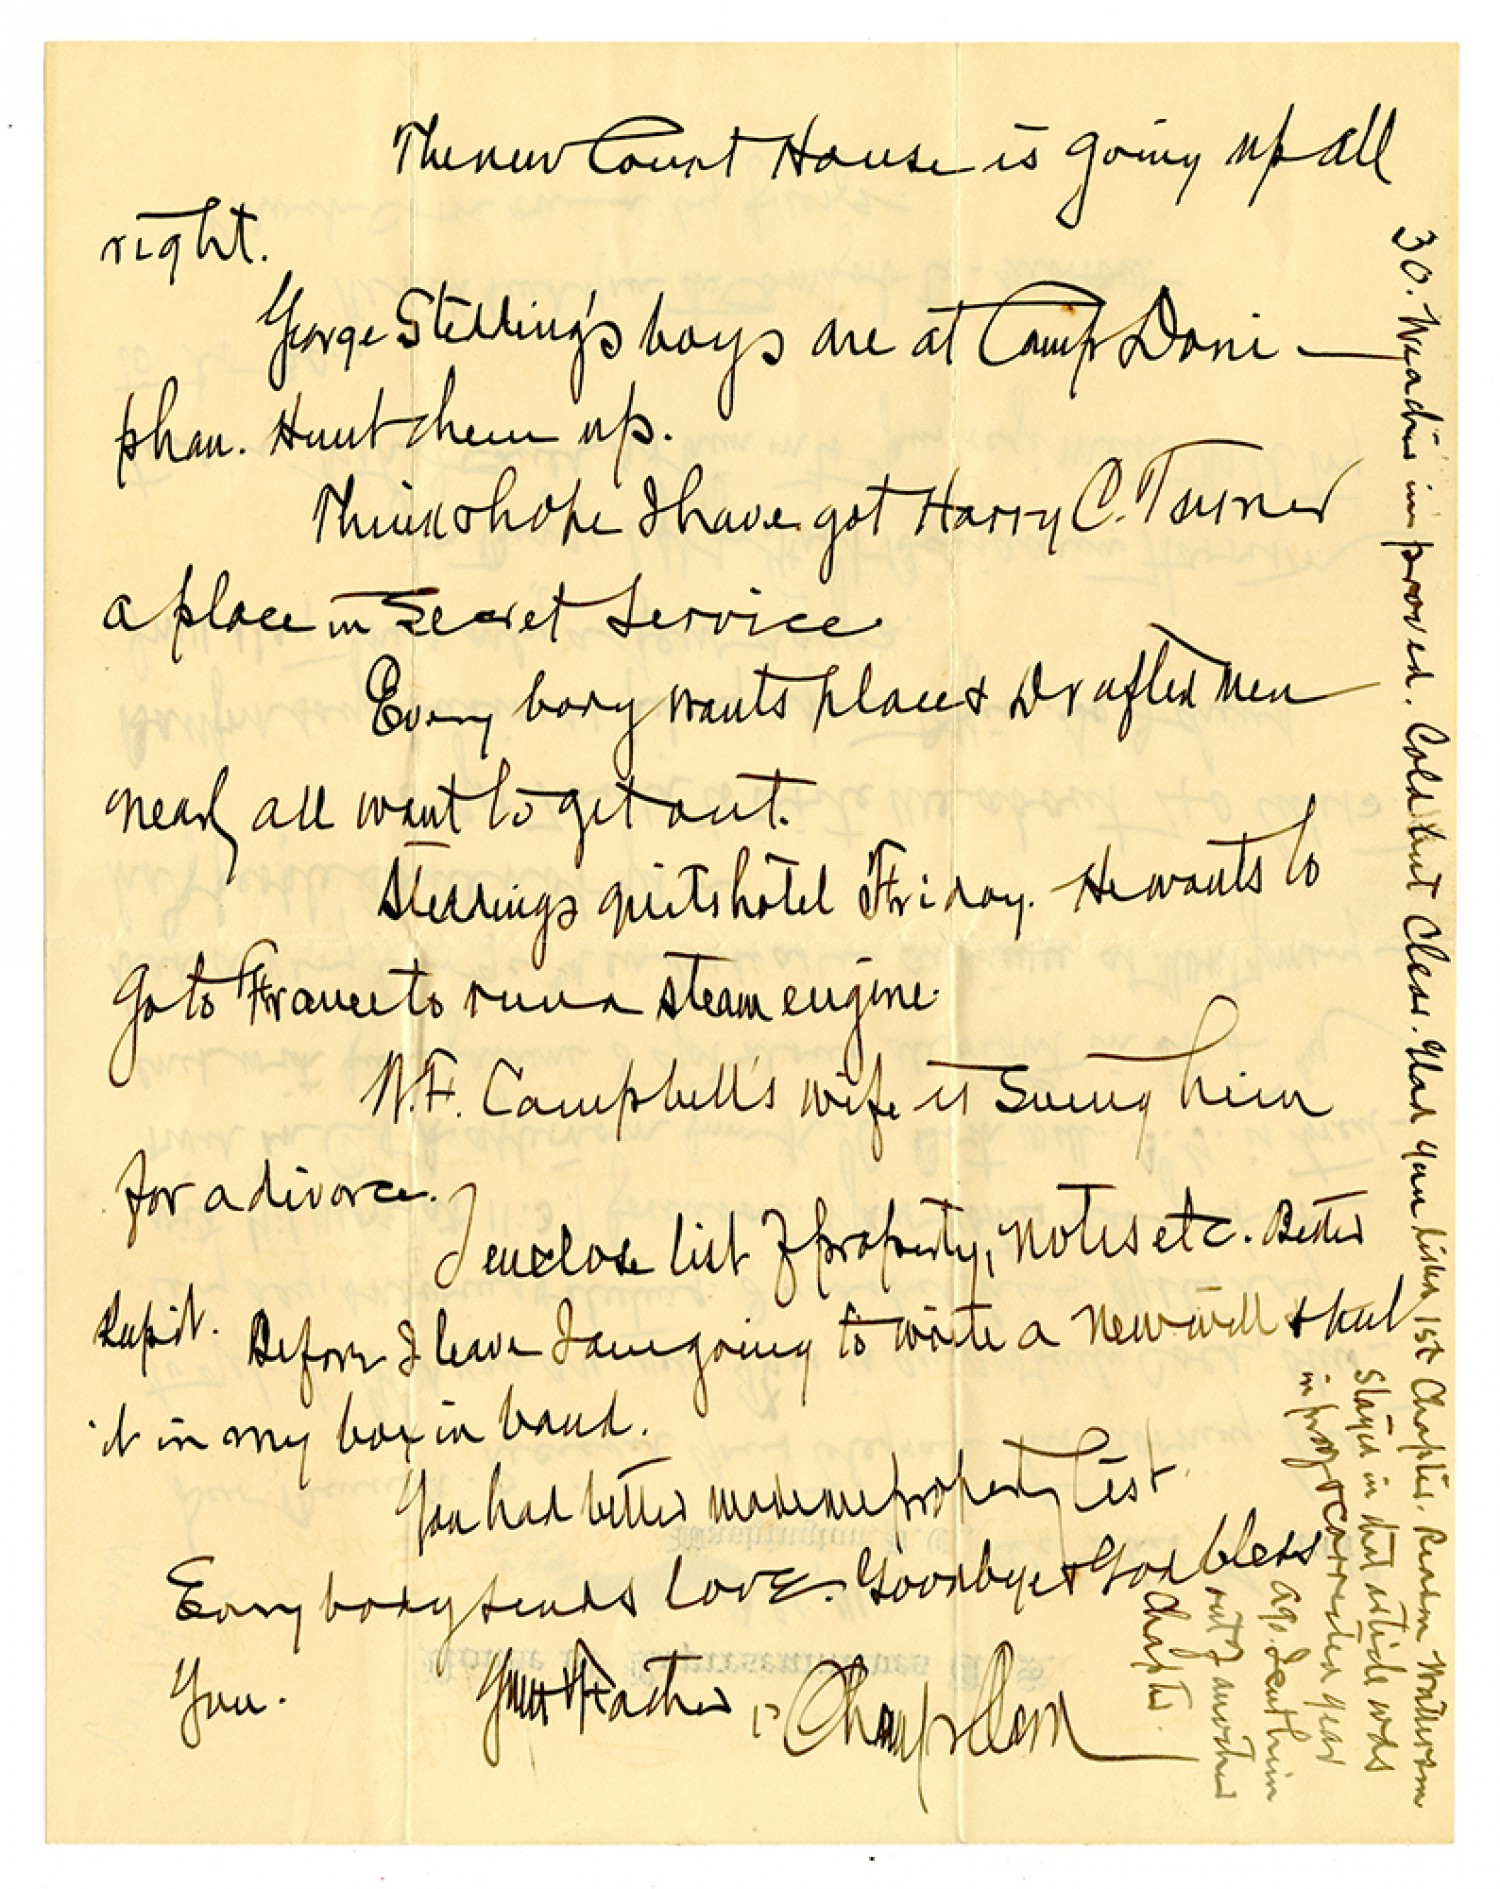 The new Court House is going up all
right.
George Stelling's boys are at Camp Doni-
phan. Hunt them up.
Think & hope I have got Harry C. Turner
a place in Secret Service.
Every body wants place & Drafted men
nearly all want to get out.
Stellings quits hotel Friday. He wants to
go to France to run a steam engine.
W.F. Campbell's wife is suing him
for a divorce.
I enclose list of property, notes etc. Better
keep it. Before I leave I am going to write a new will & put
it in my box in bank.
You had better made me property list.
Every body sends love. Goodbye & God bless
You. Your Father, Champ Clark
30. Weather improved. Cold but Clear. Glad you liked 1st Chapter. Reason
stayed in that article was
in proof & corrected year
ago. I cut him
out of another
chapter.